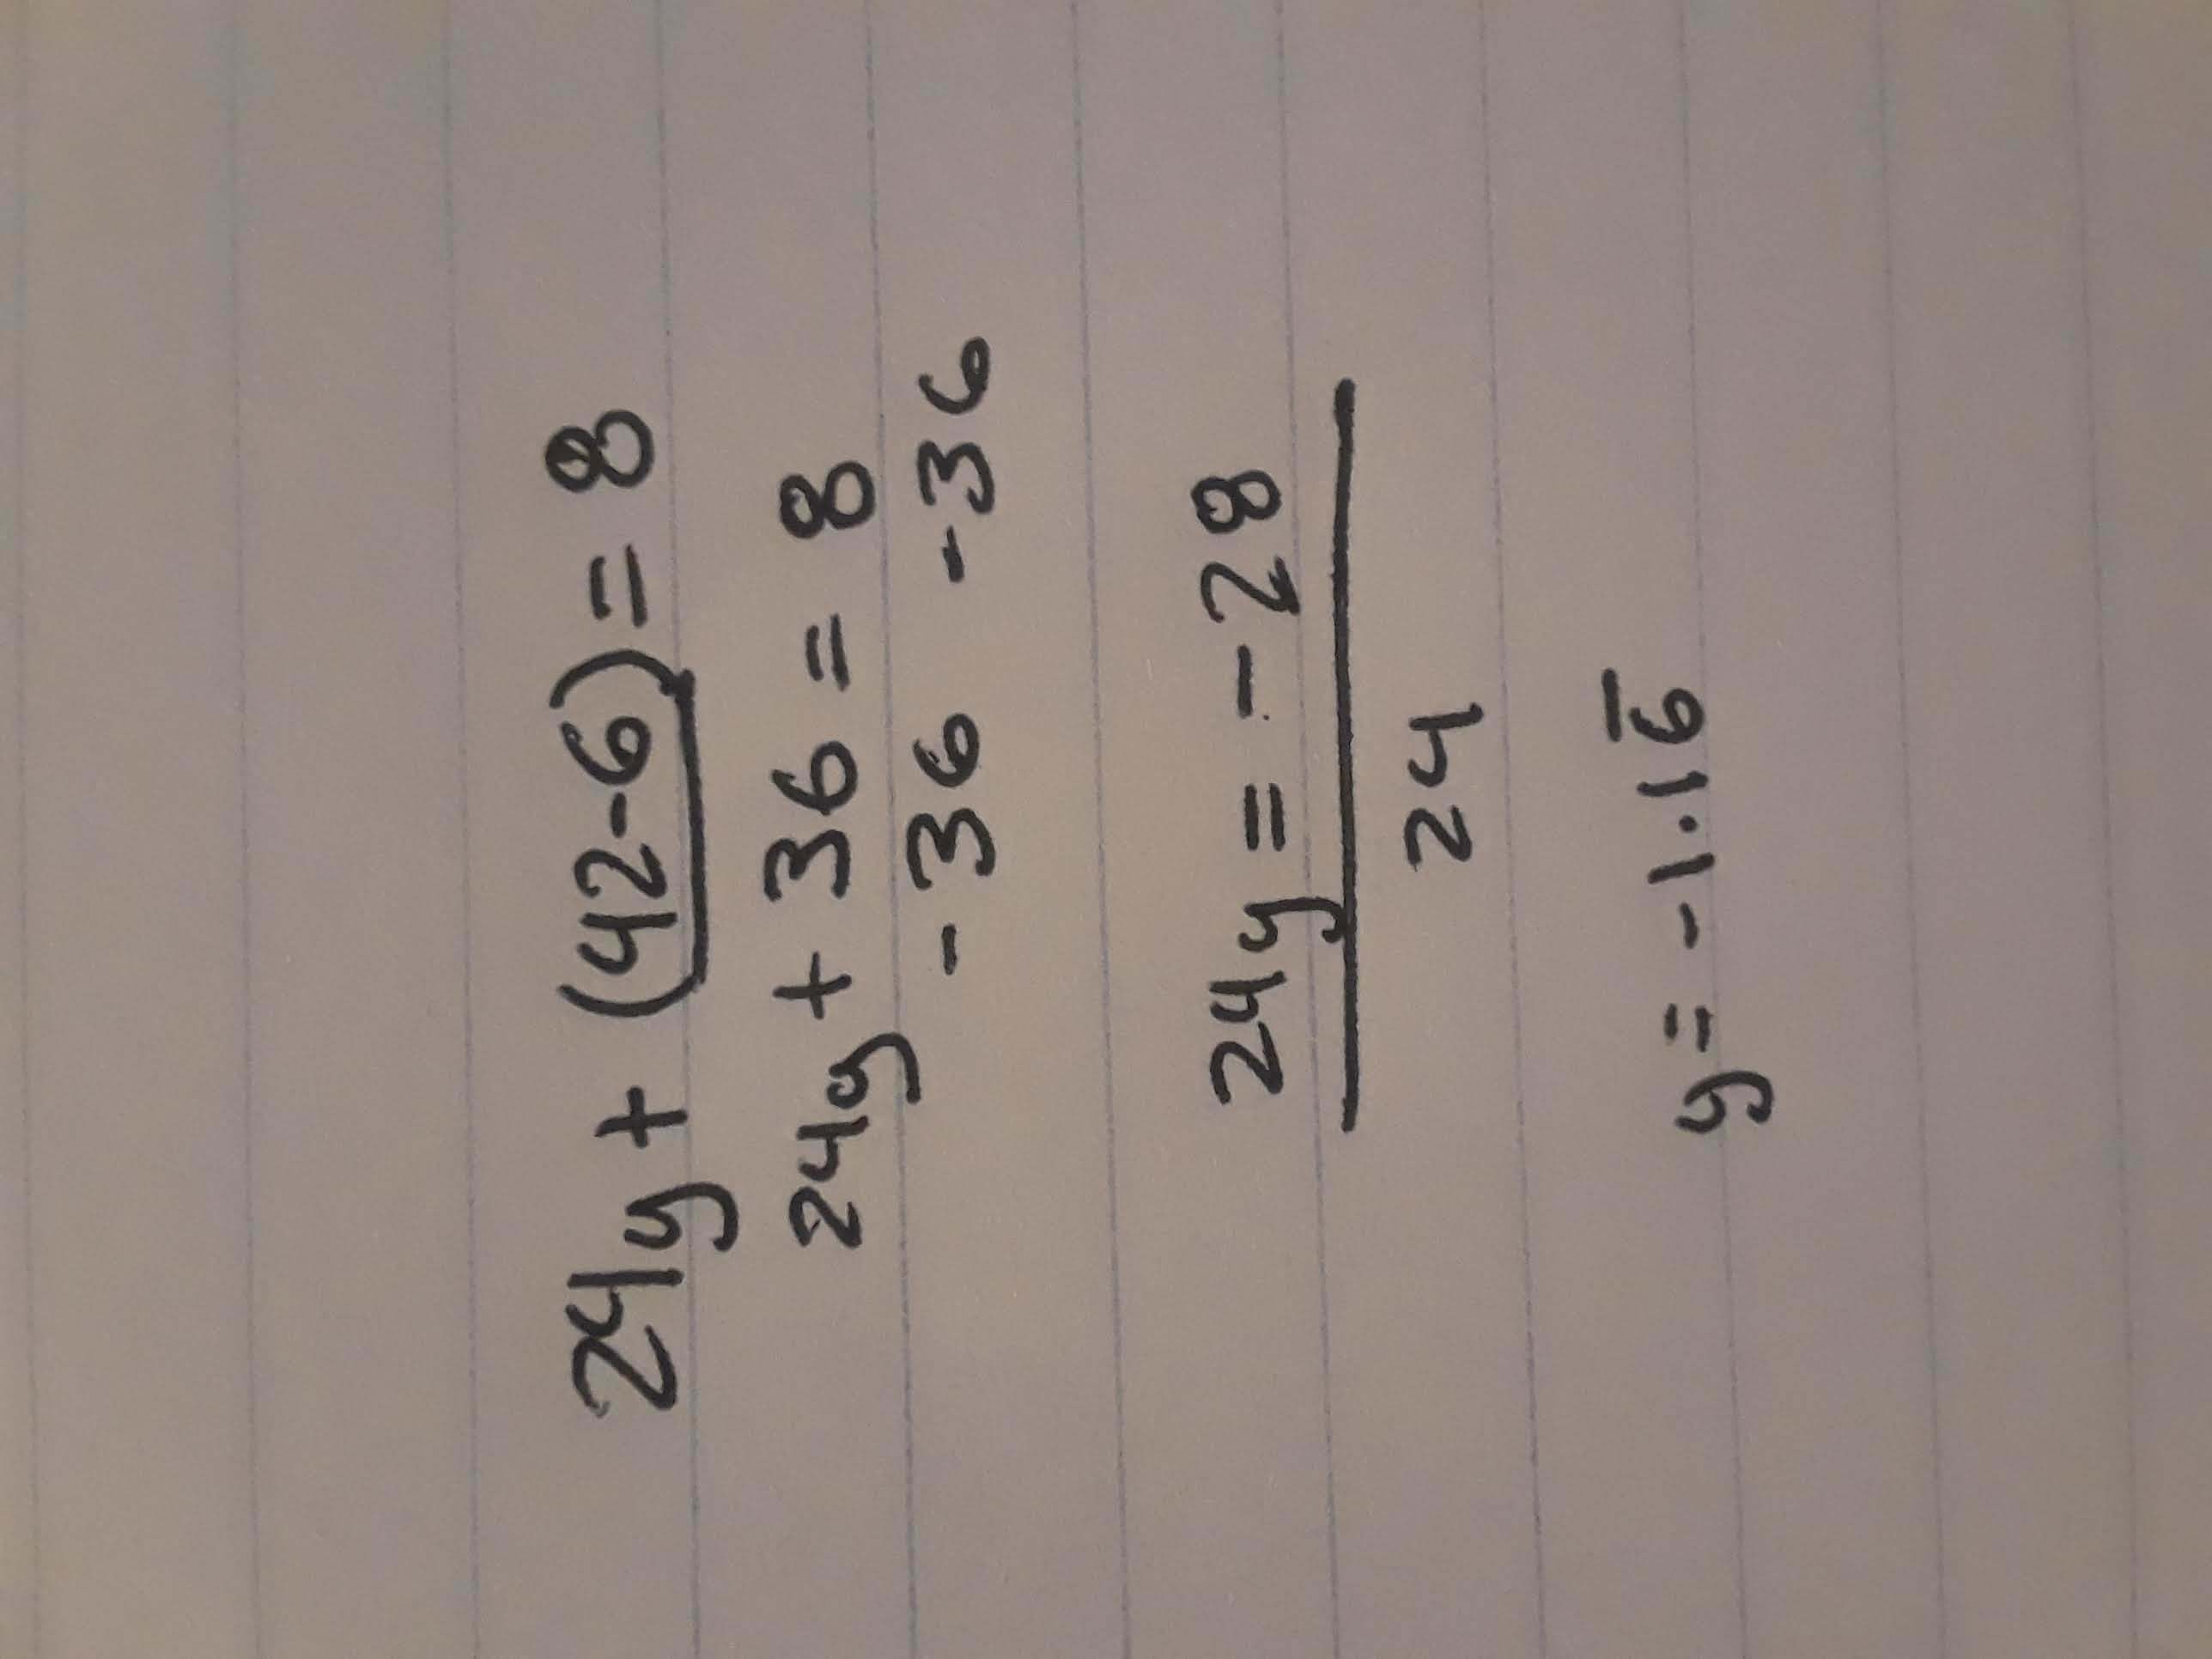 24y + (42-6) = 8
24y + 36 = 8
- 36 -36
24y = - 28
24
y = -1.16̅